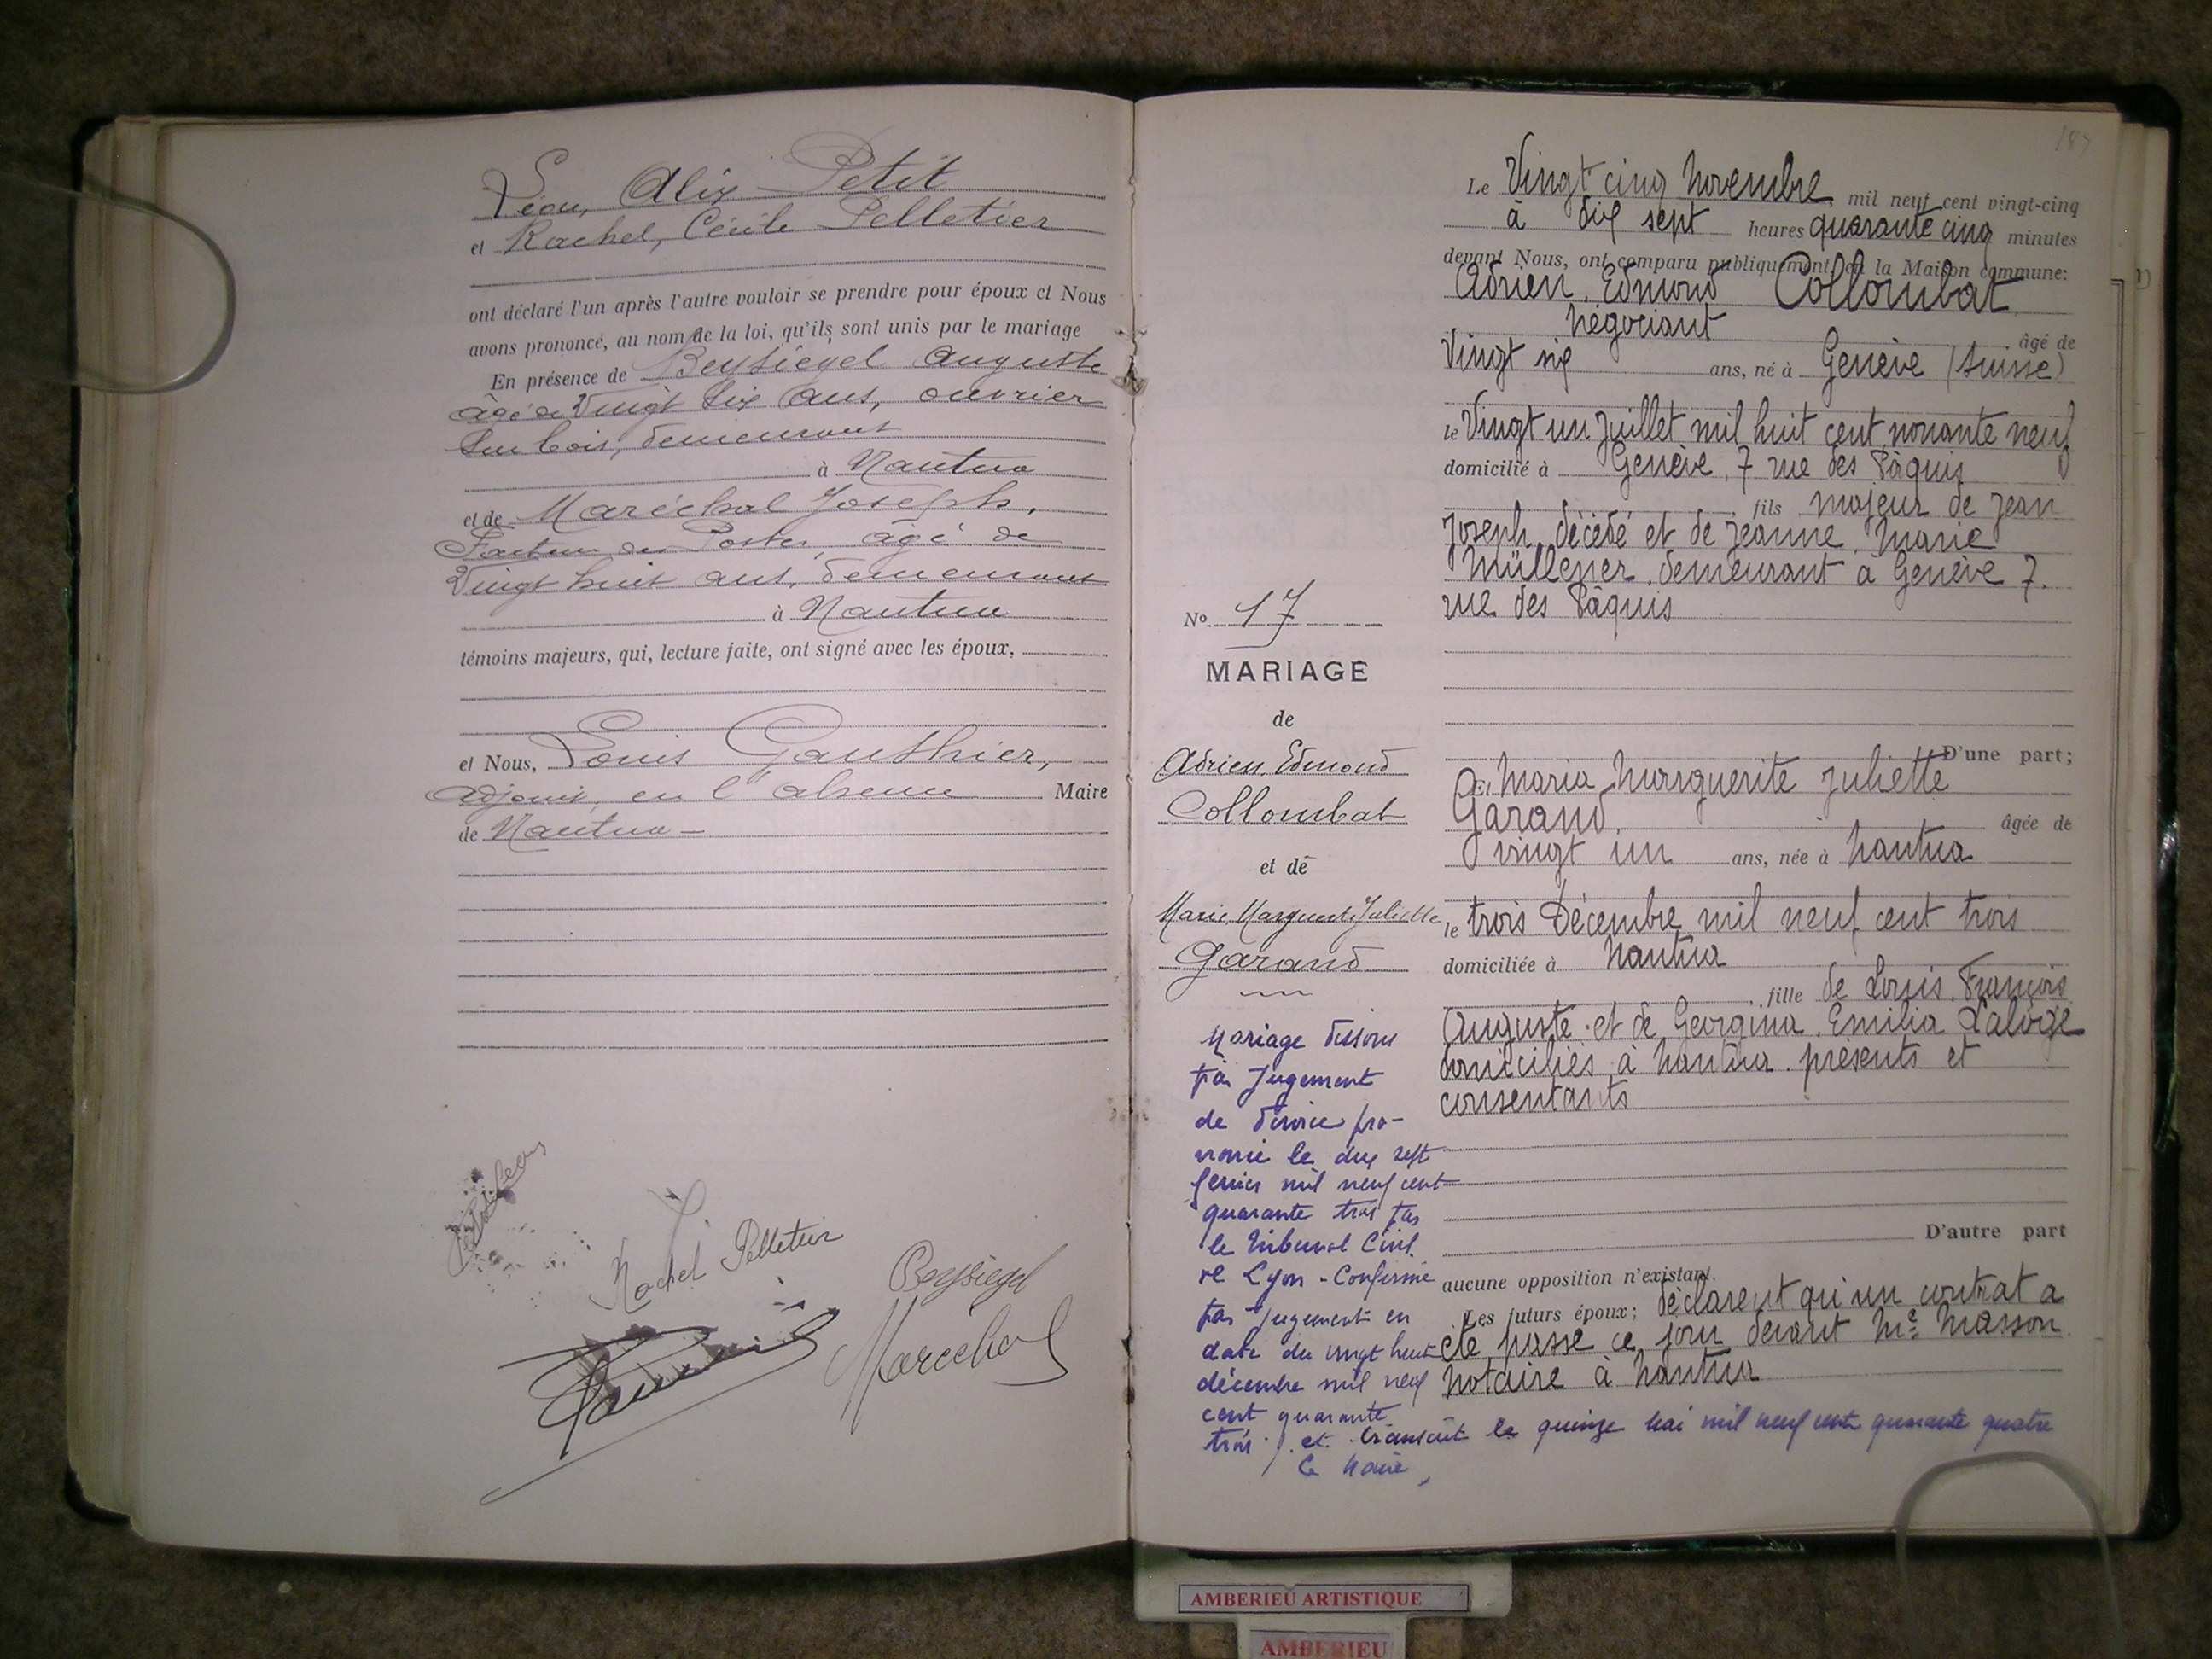 Léon, Alix Petit
et Rachel, Cécile Pelletier
ont déclaré l'un après l'autre vouloir se prendre pour époux et Nous
avons prononcé, au nom de la loi, qu'ils sont unis par le mariage
En présence de Beysiegel Auguste
âgé de Vingt six ans, ouvrier
sur bois, demeurant
à Nantua
et de Maréchal Joseph,
Facteur des Postes, âgé de
Vingt huit ans, demeurant
à Nantua
témoins majeurs, qui, lecture faite, ont signé avec les époux,
et Nous, Louis Gauthier,
adjoint, en l'absence Maire
de Nantua
Rachel Pelletier
Beysiegel
Marechal
187
Le Vingt cinq Novembre, mil neuf cent vingt-cinq
à dix sept heures quarante cinq minutes
devant Nous, ont comparu publiquement en la Maison commune:
Adrien, Edmond Collombat
négociant
âgé de
Vingt six ans, né à Genève (Suisse)
le Vingt un juillet mil huit cent nonante neuf
domicilié à Genève, 7 rue des Pâquis
fils majeur de Jean
Joseph, décédé et de Jeanne, Marie
Müllener, demeurant à Genève 7.
rue des Pâquis
D'une part;
Et Maria Marguerite Juliette
Garand, âgée de
vingt un ans, née à Nantua
le trois Décembre mil neuf cent trois
domiciliée à Nantua
fille de Louis, François
Auguste et de Georgina, Emilia Laloge
domiciliés à Nantua présents et
consentants
D'autre part
aucune opposition n'existant.
Les futurs époux; déclarent qu'un contrat a
été passé ce jour devant Me Masson
notaire à Nantua
No 17
MARIAGE
de
Adrien, Edmond
Collombat
et de
Maria, Marguerite Juliette
Garand
Mariage dissous
par Jugement
de divorce pro-
noncé le dix sept
février mil neuf cent
quarante trois par
le Tribunal Civil
de Lyon - Confirmé
par jugement en
date du vingt huit
décembre mil neuf
cent quarante
trois et transcrit le quinze Mai mil neuf cent quarante quatre
Le Maire,
AMBERIEU ARTISTIQUE
AMBERIEU